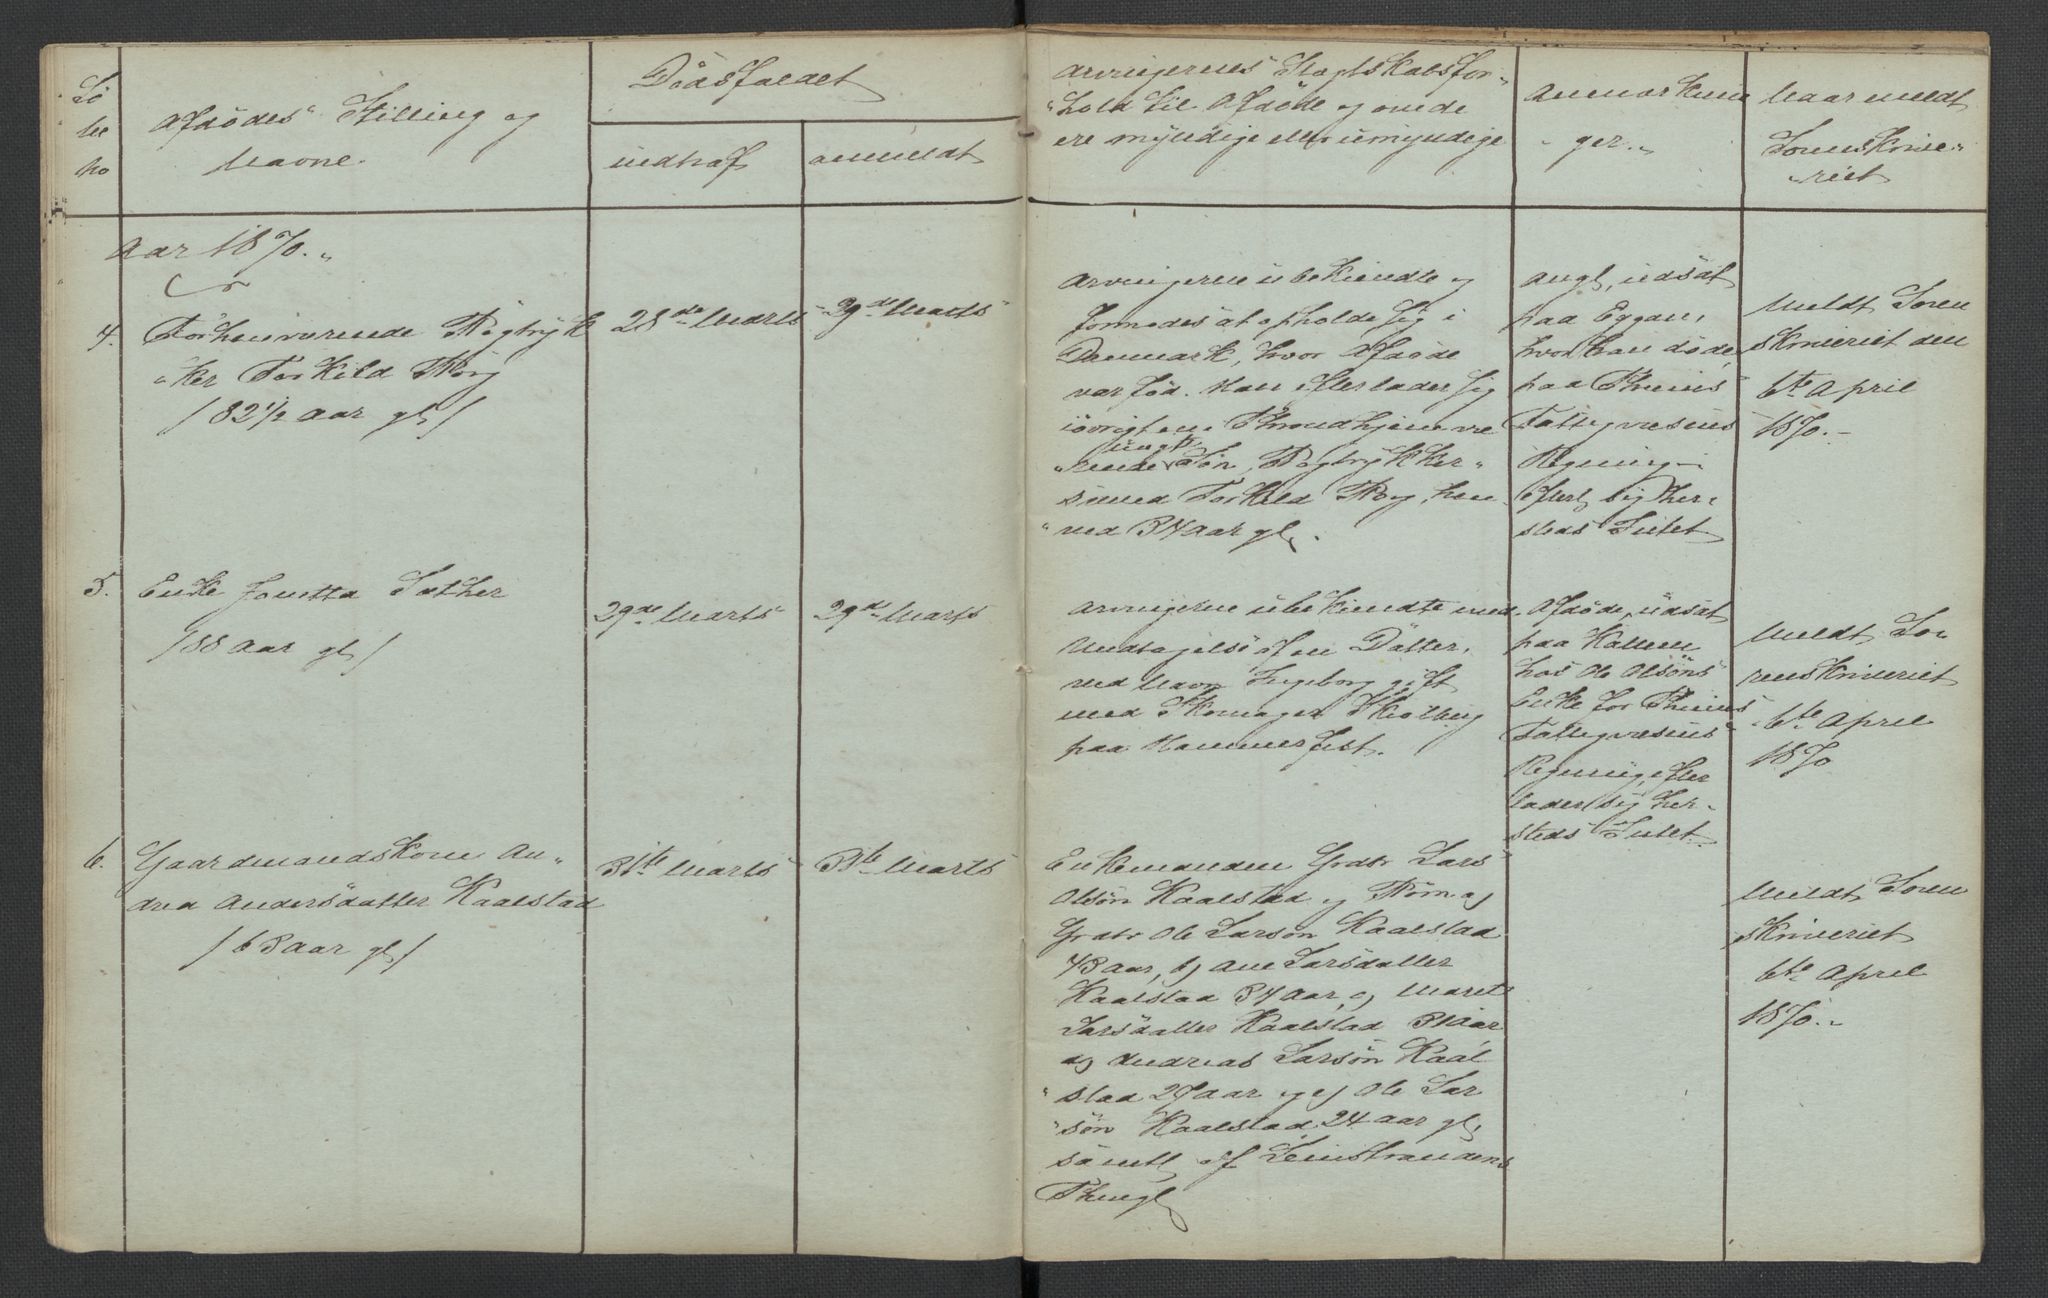 Lö
be
No
Afdødes Stilling og
Navne.
Dødsfaldet
indtraf
anmeldt
Arvingernes Slægtskabsfor-
"hold til Afdöde og om de
ere myndige eller umyndige
Anmærknin
- ger. „
Naar meldt
Sorenskrive„
„riet
Aar 1870. „
4.
Forhenværende Bogtryk
„ker Torkild Borg
/ 82 1/2 Aar gl /
28de Marts
29de Marts
Arvingerne ubekiendte og
formodes at opholde sig i
Denmark, hvor Afdøde
var fød. Han efterlader sig
iøvrigt en i Throndhjem væ
„rende ungts Søn, Bogtrykker„
svend Torkild Borg, hen
„ved 34 Aar gl.
Angl, udsat
paa Eggan,
hvor han døde,
paa Thuns
Fattigvæsens
Regning
efterl sig her„
steds Intet
Meldt Soren
skriveriet den
6te April
1870. -
5.
Enke Jonetta Sæther
/ 88 Aar gl /
29de Marts
29de Marts
Arvingerne ubekiendte med
Undtagelse af en Datter,
ved Navn Ingeborg gift
med Skomager
paa Hammerfest.
Afdøde, udsat
paa Kattem
hos Ole Olsöns
Enke for Thuns
Fattigvæsens
Regning, efter
lader sig her„
steds Intet.
Meldt So„
renskriveriet
6te April
1870
6.
Gaardmandskone An„
drea Andersdatter Kaalstad
/ 63 Aar gl /
31te Marts
31te Marts
Enkemanden Grdbr Lars
Olsön Kaalstad og Börn a)
Grdbr Ole Larsön Kaalstad
43 Aar, b) Ane Larsdatter
Kaalstad 34 Aar, c) Marit
Larsdatter Kaalstad 31 Aar
d) Andreas Larsön Kaal
„stad 27 Aar og e) Ole Lar
„sön Kaalstad 24 Aar gl,
samtl af Leinstrandens
Thingl
Meldt Soren
skriveriet
6te April
1870. „